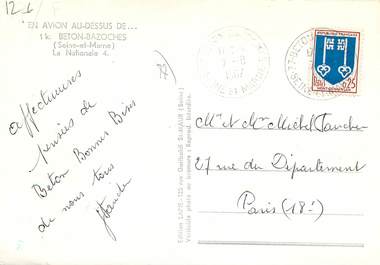 12-f
EN AVION AU-DESSUS DE...
1 k. BETON-BAZOCHES
(Seine-et-Marne)
La Nationale 4.
77
affectueuses
pensées de
Beton Bonnes Bises
de nous tous
Edition LAPIE - 123 rue Garibaldi St-MAUR (Seine)
Véritable photo au bromure : Reprod. Interdite.
1967
SEINE-ET-MARNE
REPUBLIQUE FRANCAISE
0,25
Mr et Mme Michel
27 rue du Département
Paris (18e)